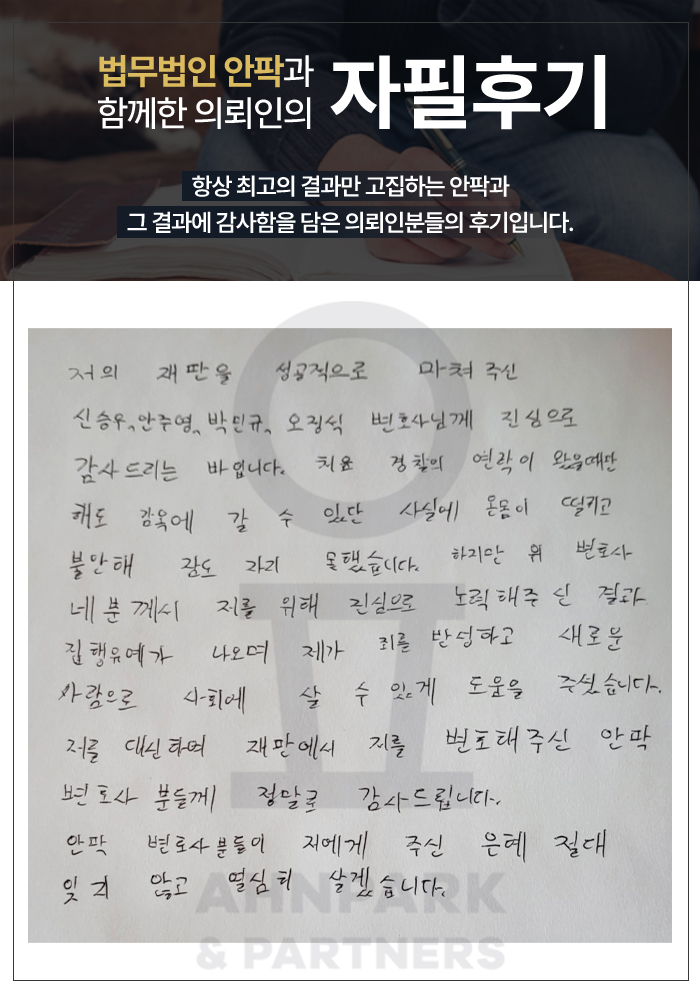 법무법인 안팍과
함께한 의뢰인의
자필후기
항상 최고의 결과만 고집하는 안팍과
그 결과에 감사함을 담은 의뢰인분들의 후기입니다.
저의 재판을 성공적으로 마쳐 주신
신승우, 안주영, 박민규, 오정석 변호사님께 진심으로
감사드리는 바입니다. 처음 경찰의 연락이 왔을때만
해도 감옥에 갈 수 있단 사실에 온몸이 떨리고
불안해 잠도 자지 못했습니다. 하지만 위 변호사
네 분께서 저를 위해 진심으로 노력해주신 결과
집행유예가 나오며 제가 죄를 반성하고 새로운
사람으로 사회에 살 수 있게 도움을 주셨습니다.
저를 대신하며 재판에서 저를 변호해주신 안팍
변호사 분들께 정말로 감사드립니다.
안팍 변호사분들이 저에게 주신 은혜 절대
잊지 않고 열심히 살겠습니다.
AHNPARK
& PARTNERS